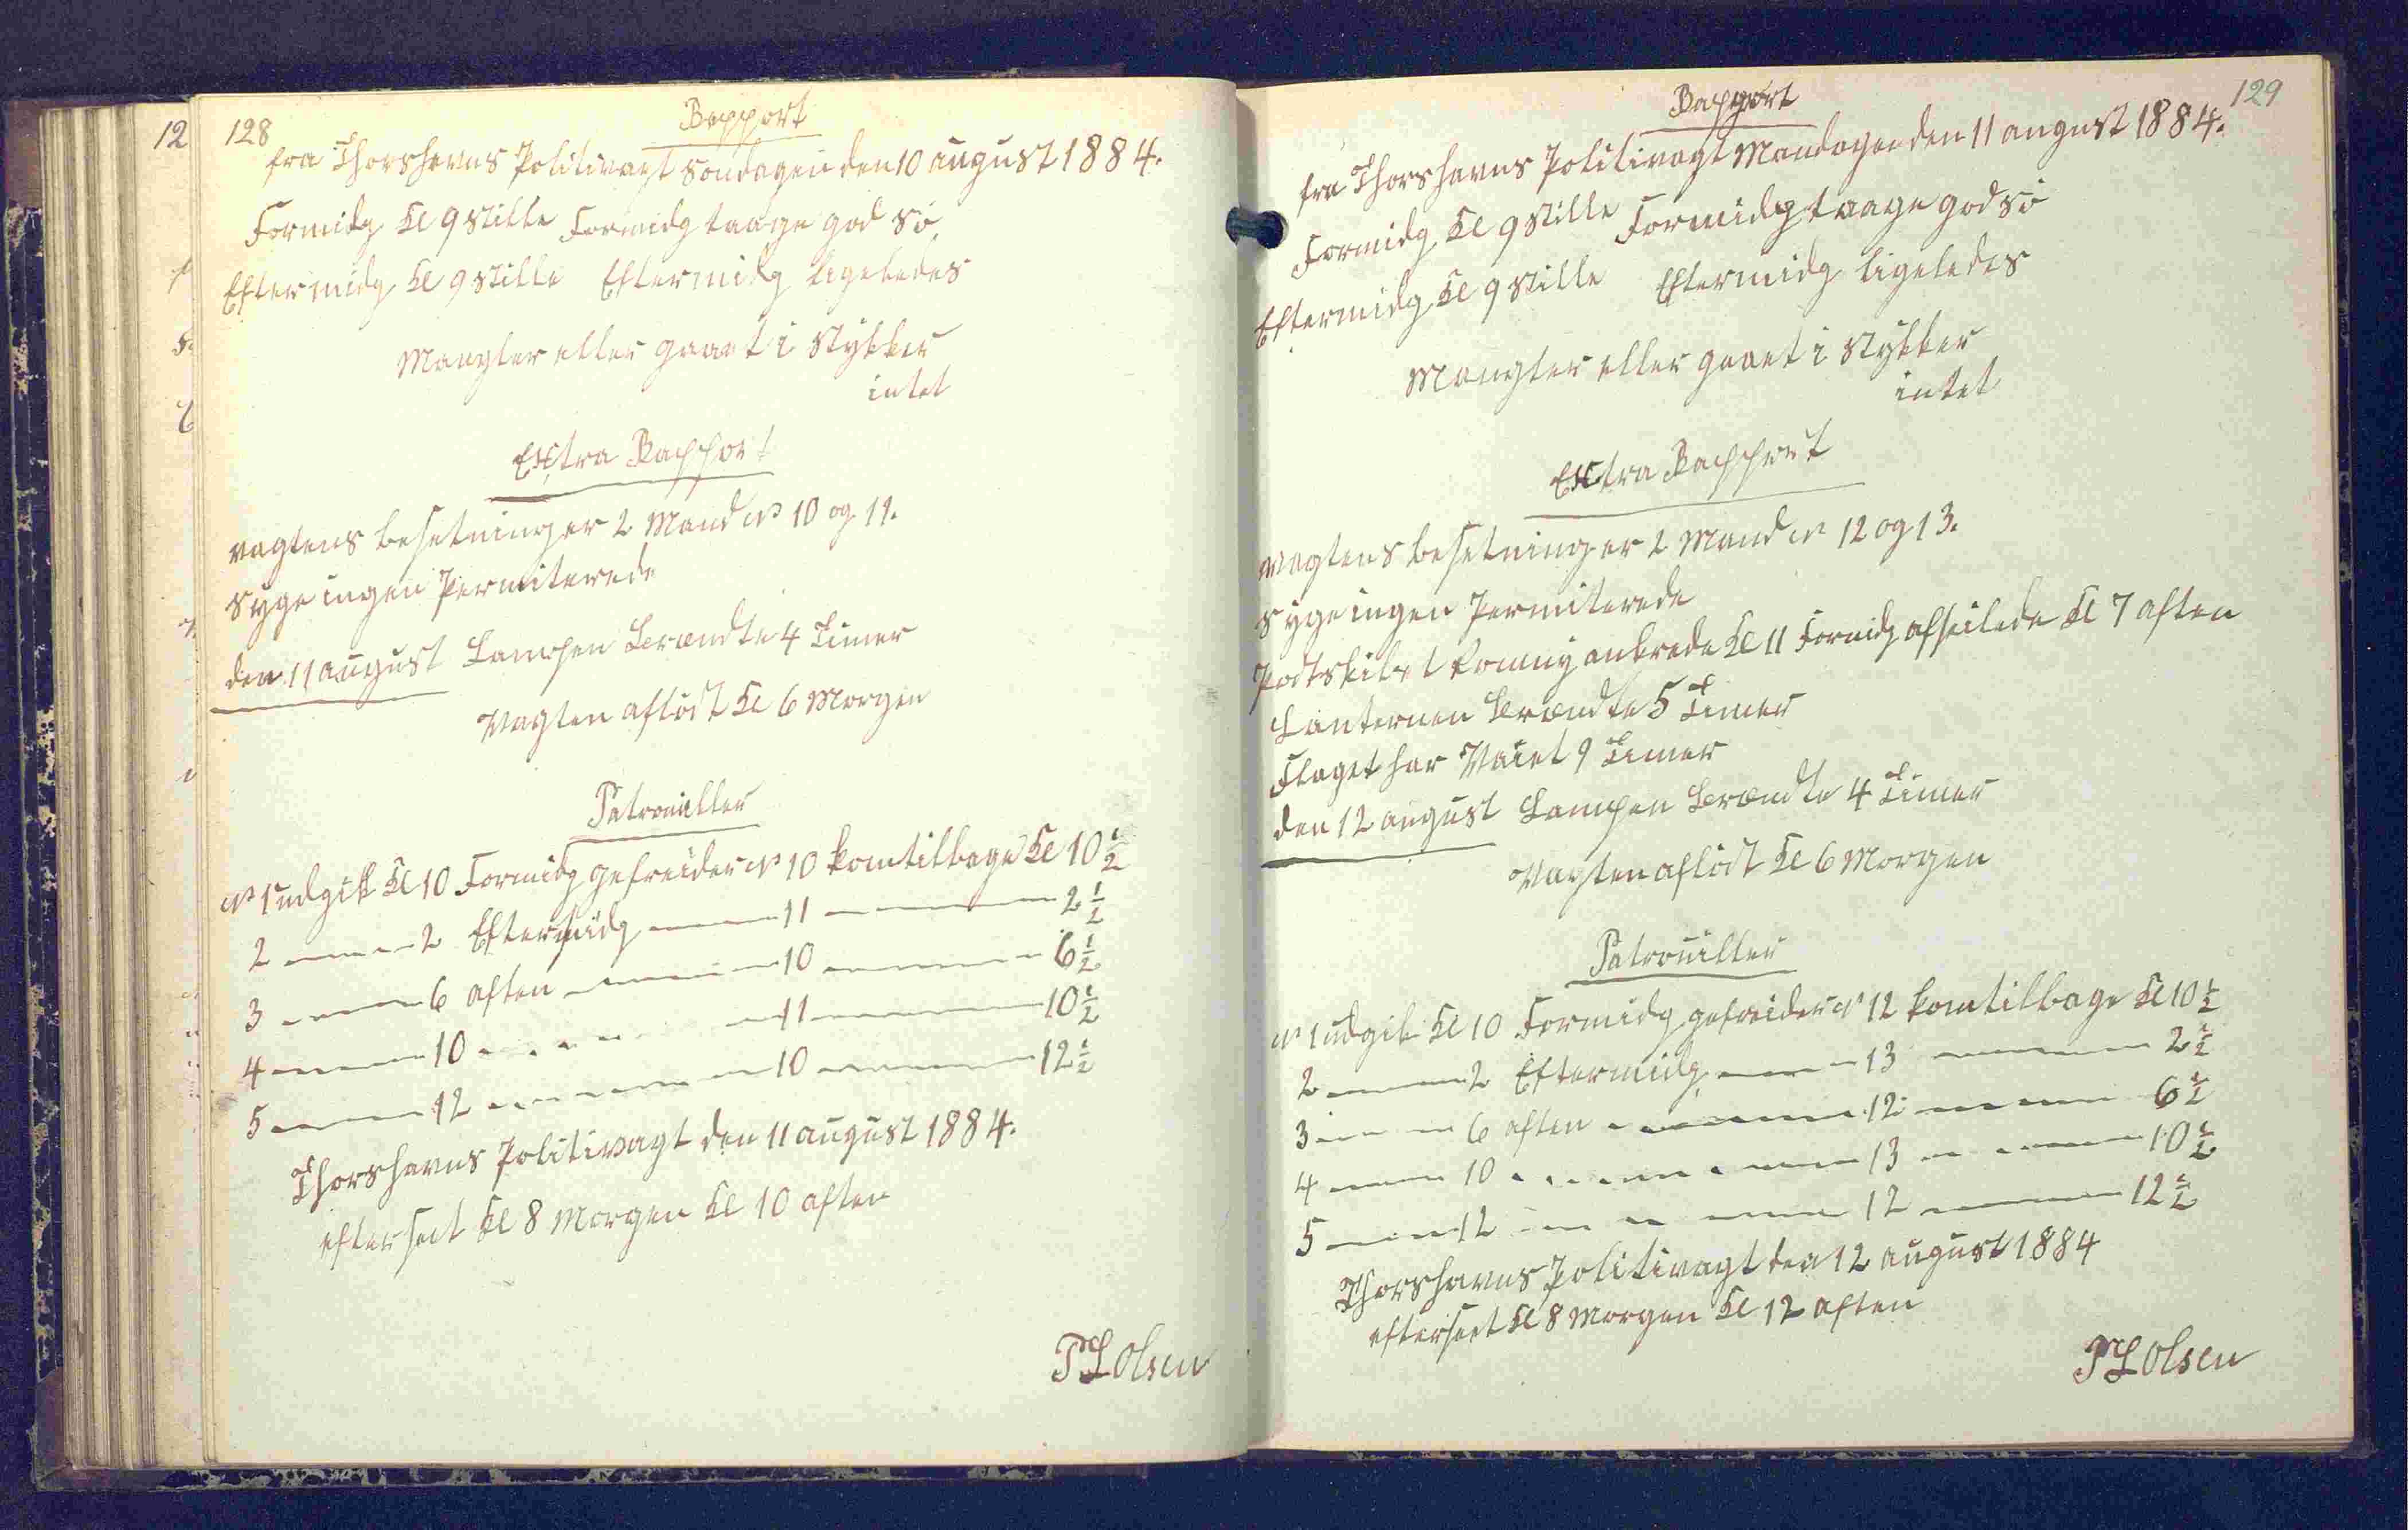 128
Rapport
fra Thorshavns Politivagt Söndagen den 10 august 1884.
Formidg Kl 9 Stille Formidg taage god Sö
Eftermidg Kl 9 Stille Eftermidg ligeledes
Mangler eller gaaet i Stÿkker
intet
Extra Rapport
vagtens besetning er 2 Mand No 10 og 11.
Syge ingen Permiterede
den 11 august Lampen Brændte 4 Timer
Vagten aflöst Kl 6 Morgen
Patrouiller
No 1 udgik Kl 10 Formidg gefreider No 10 kom tilbage Kl 10 1/2
2 — 2 Eftermidg — 11 — 2 1/2
3 — 6 aften — 10 — 6 1/2
4 — 10 — 11 — 10 1/2
5 — 12 — 10 — 12 1/2
Thorshavns Politivagt den 11 august 1884.
efterseet Kl 8 Morgen Kl 10 aften
P L Olsen
129
Rapport
fra Thorshavns Politivagt Mandagen den 11 august 1884.
Formidg Kl 9 Stille Formidg taage god Sö
Eftermidg Kl 9 Stille Eftermidg ligeledes
Mangler eller gaaet i Stÿkker
intet
Extra Rapport
vagtens besetning er 2 Mand No 12 og 13.
Syge ingen Permiterede
Postskibet Romny ankrede Kl 11 Formidg afseilede Kl 7 aften
Lanternen Brændte 5 Timer
Flaget har Vaiet 9 Timer
den 12 august Lampen Brændte 4 Timer
Vagten aflöst Kl 6 Morgen
Patrouiller
No 1 udgik Kl 10 Formidg gefreider No 12 kom tilbage Kl 10 1/2
2 — 2 Eftermidg — 13 — 2 1/2
3 — 6 aften — 12 — 6 1/2
4 — 10 — 13 — 10 1/2
5 — 12 — 12 — 12 1/2
Thorshavns Politivagt den 12 august 1884
efterseet Kl 8 Morgen Kl 12 aften
P L Olsen